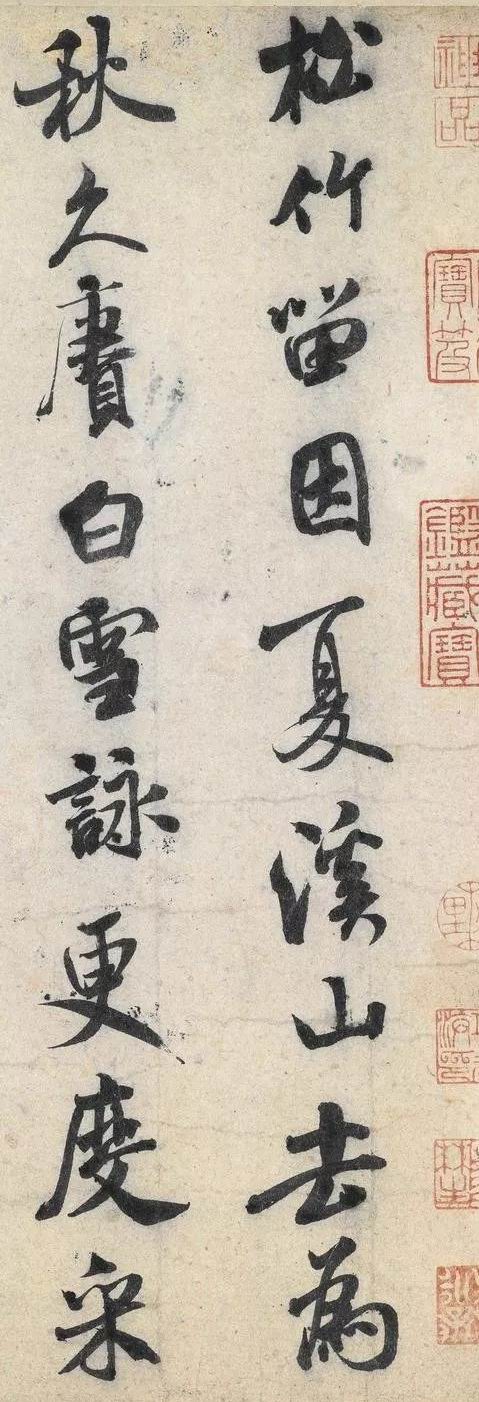 松竹留因夏溪山去為
秋久賡白雪詠更度采
神品
寶蘊
鑑藏寶